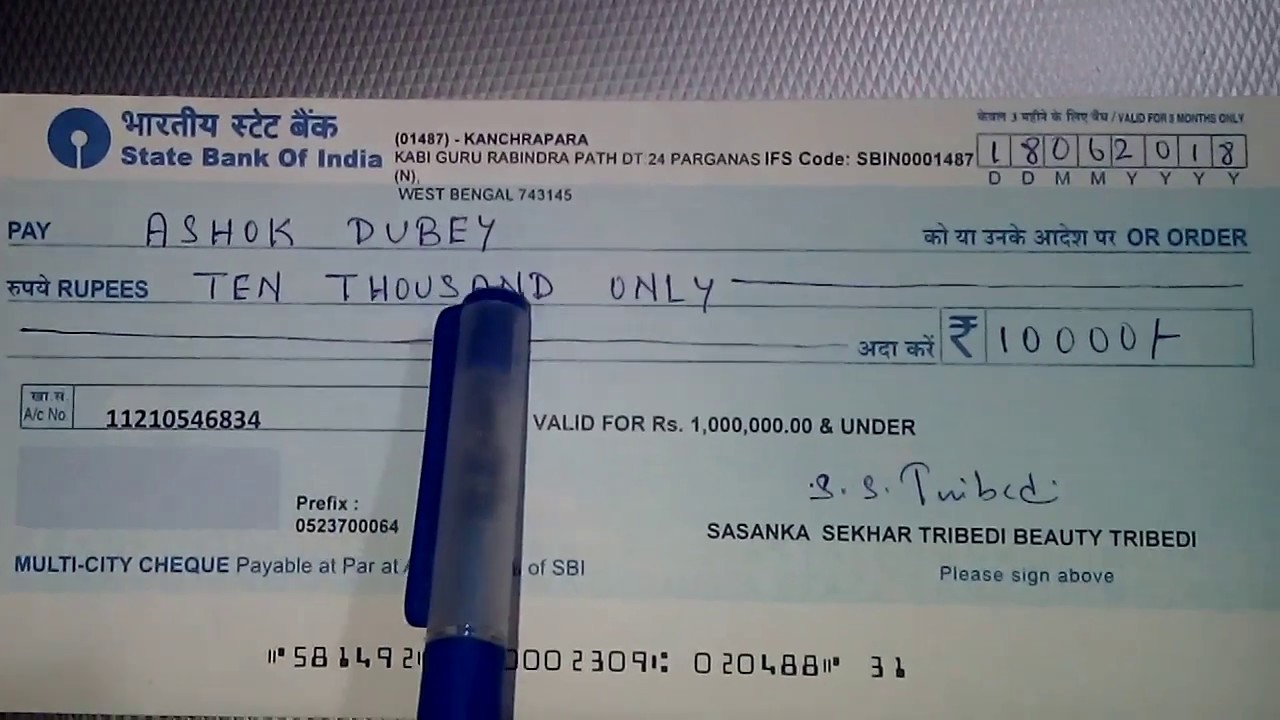 भारतीय स्टेट बैंक
State Bank Of India
(01487) - KANCHRAPARA
KABI GURU RABINDRA PATH DT 24 PARGANAS IFS Code: SBIN0001487
(N),
WEST BENGAL 743145
केवल 3 महीने के लिए वैध / VALID FOR 3 MONTHS ONLY
1 8 0 6 2 0 1 8
D D M M Y Y Y Y
PAY ASHOK DUBEY को या उनके आदेश पर OR ORDER
रुपये RUPEES TEN THOUSAND ONLY
अदा करें ₹ 10000/-
खा.सं.
A/c No 11210546834
VALID FOR Rs. 1,000,000.00 & UNDER
Prefix :
0523700064
S. S. Tribedi
SASANKA SEKHAR TRIBEDI BEAUTY TRIBEDI
Please sign above
MULTI-CITY CHEQUE Payable at Par at of SBI
⑈581492 0002309⑆ 020488⑈ 31